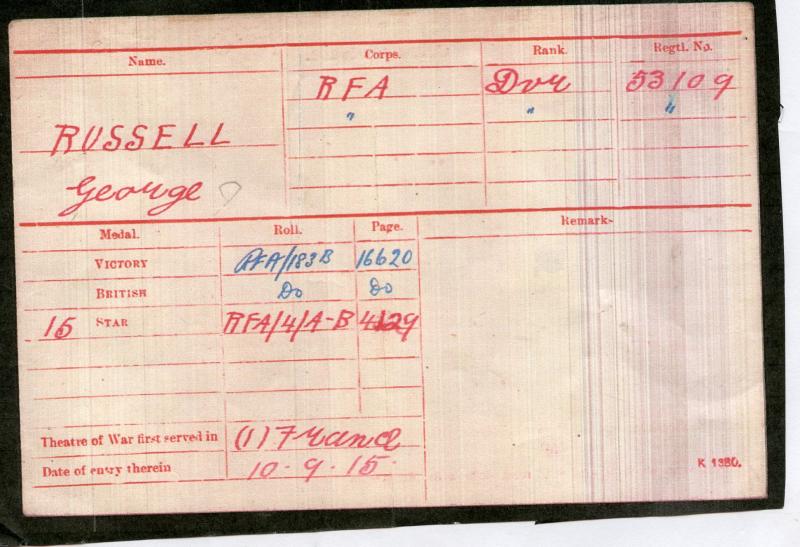 Name. Corps. Rank. Regtl. No.
RFA Dvr 53109
" " "
RUSSELL
George
Medal. Roll. Page. Remarks
VICTORY RFA/183B 16620
BRITISH Do Do
15 STAR RFA/4/A-B
Theatre of War first served in (1) France
Date of entry therein 10-9-15
K 1380.